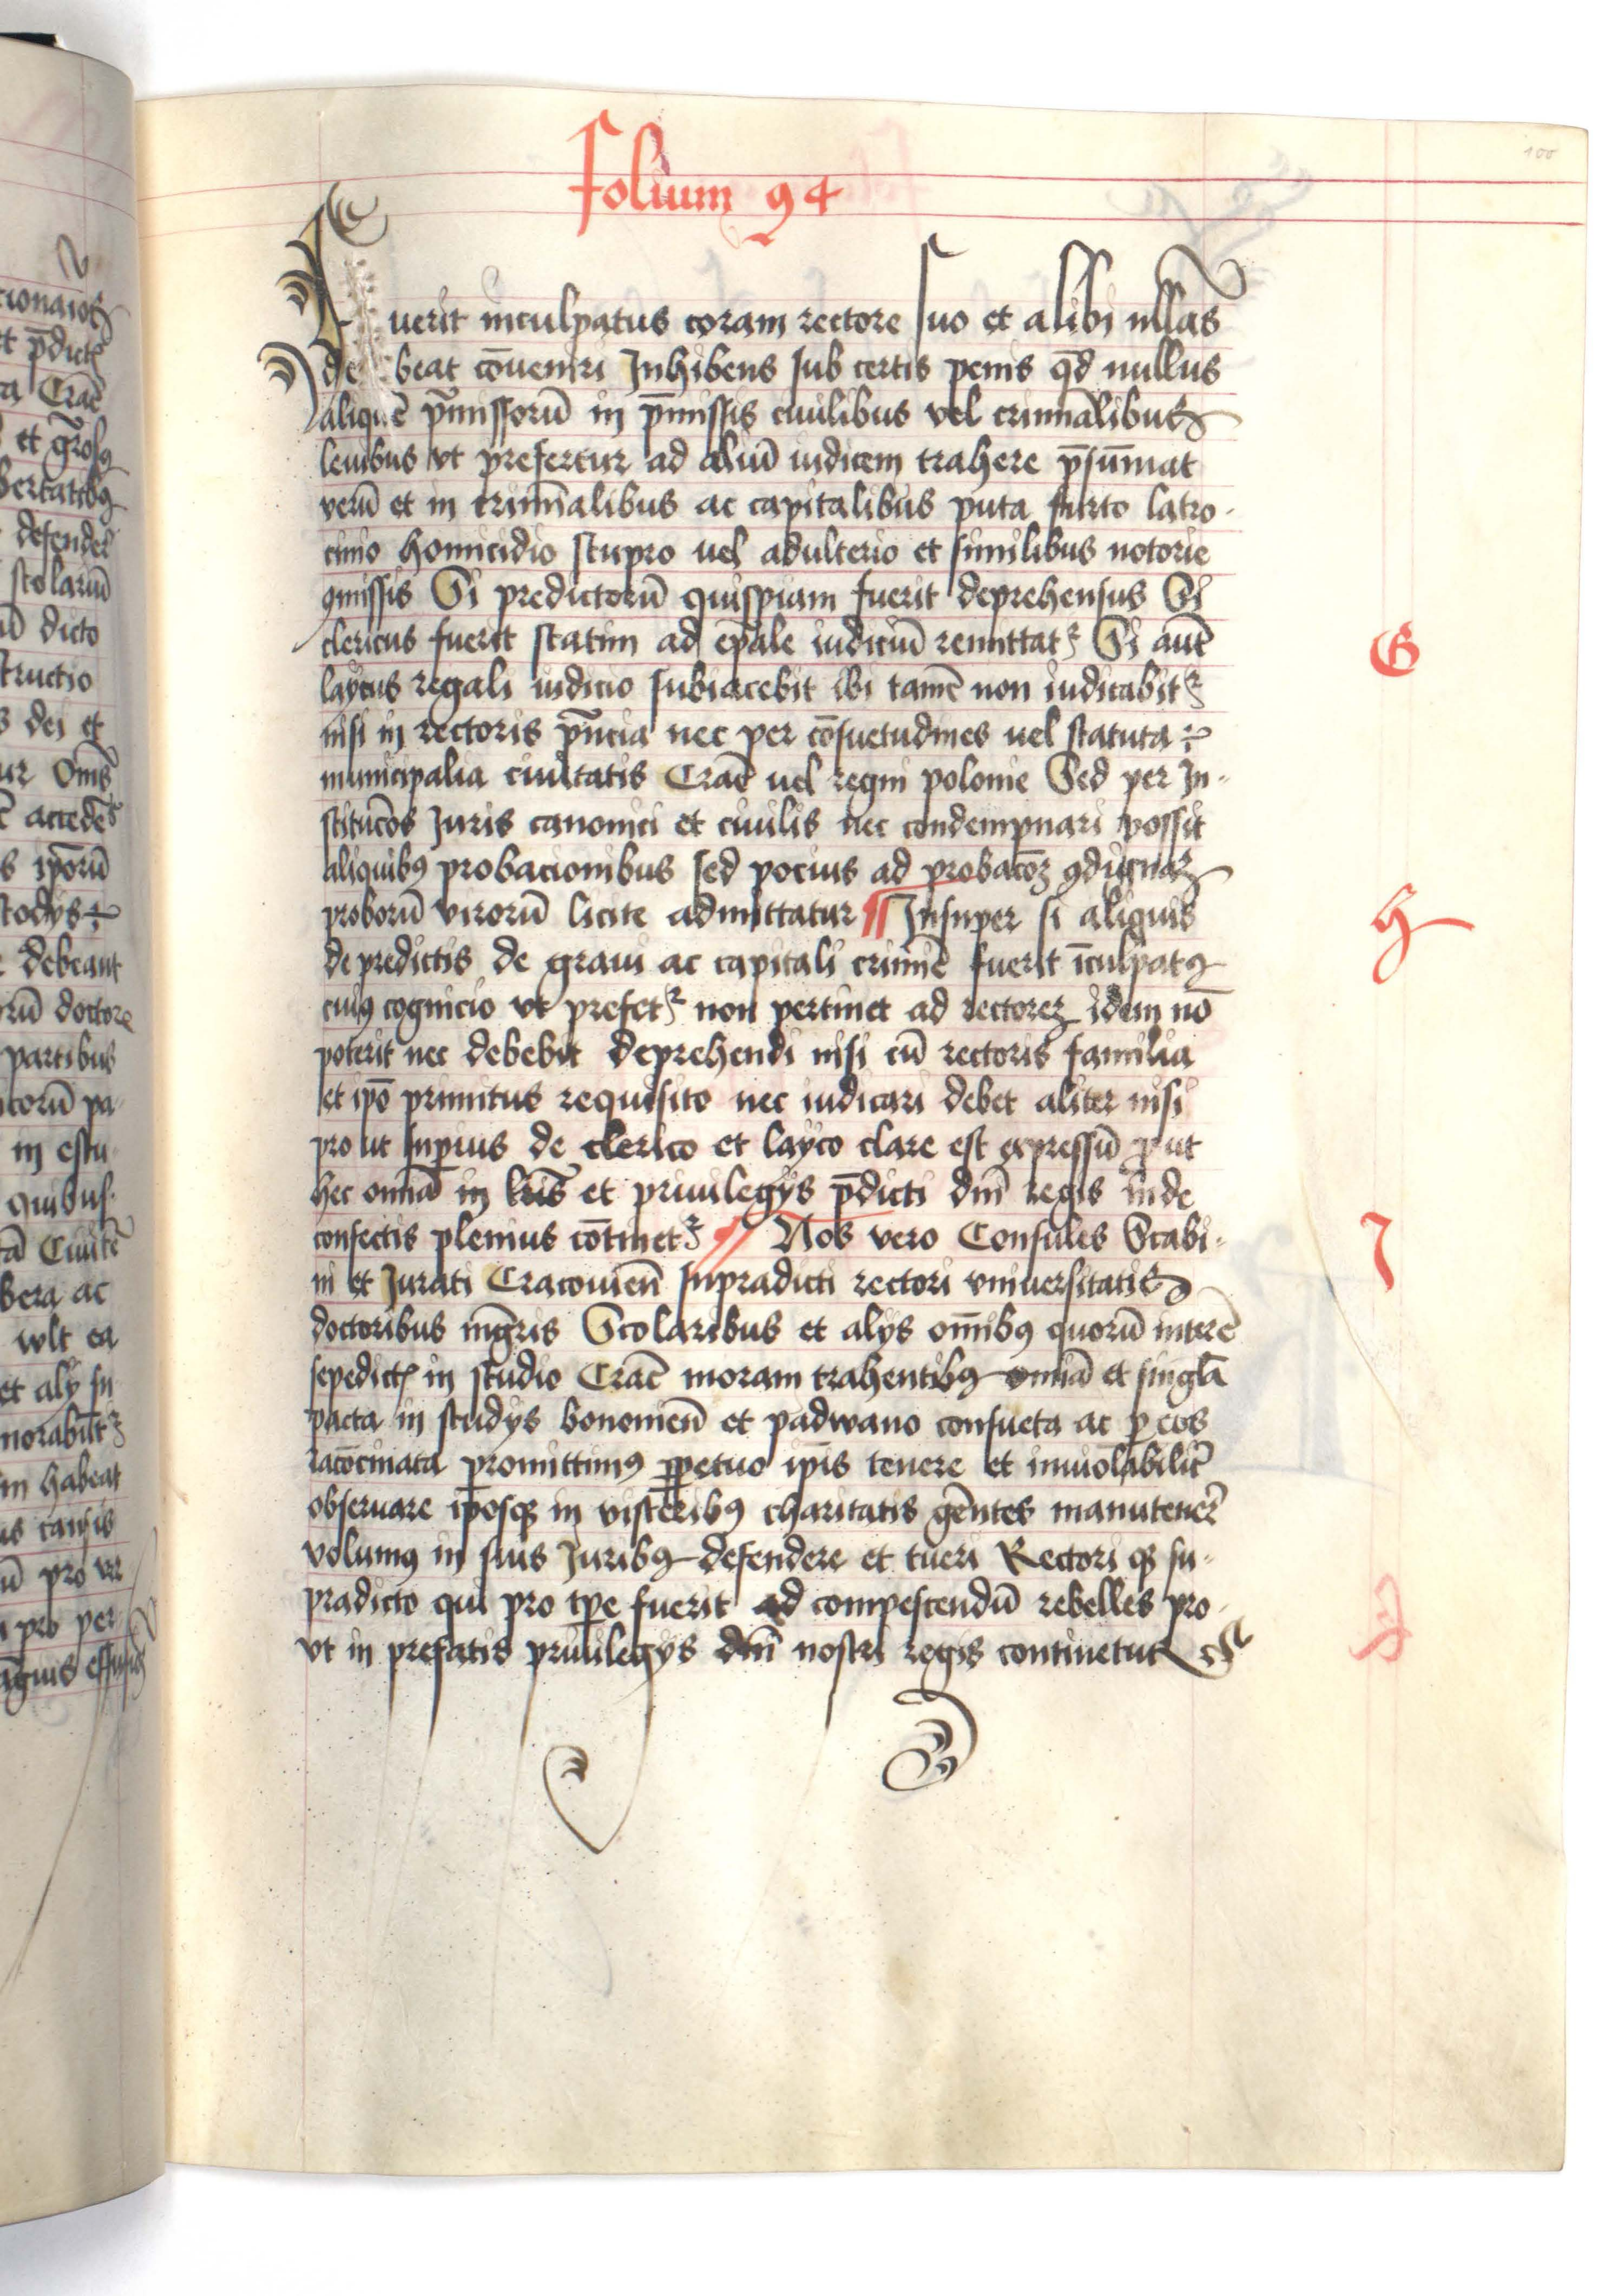 100
folium 94
fuerit inculpatus coram rectore suo et alibi nllas
debeat cōveniri Inhibens sub certis penis qd̄ nullus
aliquē p̄missorū in p̄missis ciuilibus vel criminalibus
leuibus vt prefertur ad aliū iudicem trahere p̄sūmat
verū et in crimīalibus ac capitalibus puta furto latro-
cinio homicidio stupro uel adulterio et similibus notorie
ꝯmissis Si predictorū quispiam fuerit deprehensus Si
clericus fuerit statim ad ep̄ale iudiciū remittatꝛ Si aut̄
laycus regali iudicio subiacebit ibi tamē non iudicabitꝛ
nisi in rectoris pn̄cia nec per cōsuetudines uel statuta
municipalia ciuitatis Crac̄ uel regni polonie Sed per In-
stituc̄ōs Juris canonici et ciuilis nec condempnari possit
aliquibꝰ probacionibus sed pocius ad probac̄oꝫ
proborū virorū licite admittatur Insuper si aliquis
de predictis de graui ac capitali crimīe fuerit īculpatꝰ
cuiꝰ cognicio vt prefetꝛ non pertinet ad rectorēꝫ idem nō
poterit nec debebit deprehendi nisi cū rectoris familia
et ip̄o primitus requisito nec iudicari debet aliter nisi
pro ut supius de clerico et layco clare est expressū ꝓut
hec omīa in lr̄is et priuilegÿs p̄dicti dn̄i regis inde
confectis plenius cōtinetꝛ Nos vero Consules Scabi-
ni et Jurati Cracouien̄ supradicti rectori vniuersitatis
doctoribus mgr̄is Scolaribus et alÿs om̄ibꝰ quorū interē
sepedictꝭ in studio Crac̄ moram trahentibꝰ omīa et singl̄a
pacta in studÿs bononien̄ et padwano consueta ac ꝑ eos
rac̄ocinata promittimꝰ ꝑpetuo ip̄is tenere et inuiolabilit̄
obseruare ip̄osqꝫ in visceribꝰ charitatis gēntes manutener̄
volumꝰ in suis Juribꝰ defendere et tueri Rectori qꝫ su-
pradicto qui pro tp̄e fuerit ad compescendū rebelles pro-
vt in prefatis priuilegÿs dn̄i nostri regis continetur
G
H
I